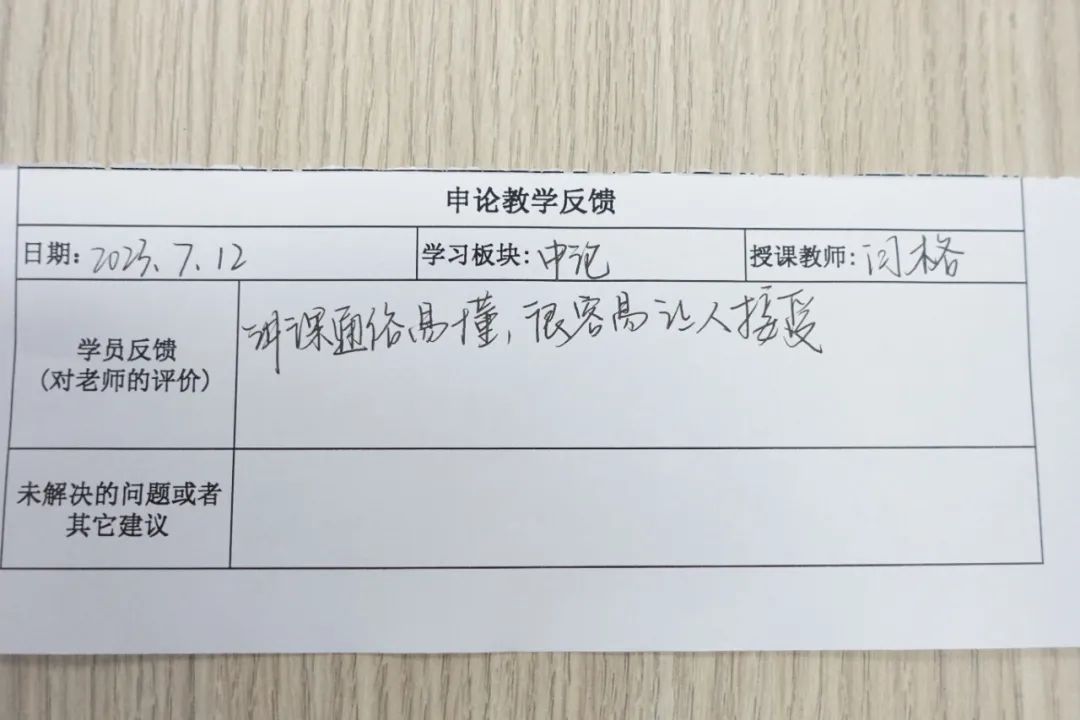 申论教学反馈
日期: 2023.7.12 学习板块: 申论 授课教师: 闫格
学员反馈
(对老师的评价)
讲课通俗易懂,很容易让人接受
未解决的问题或者
其它建议